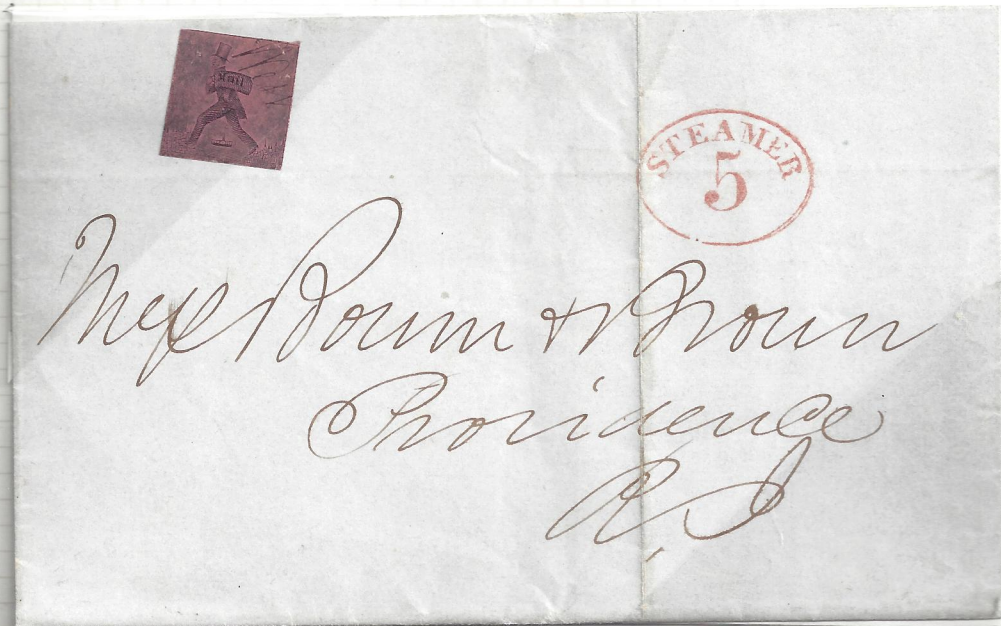 Mail
STEAMER
5
Mess Bourn & Brown
Providence
R.I